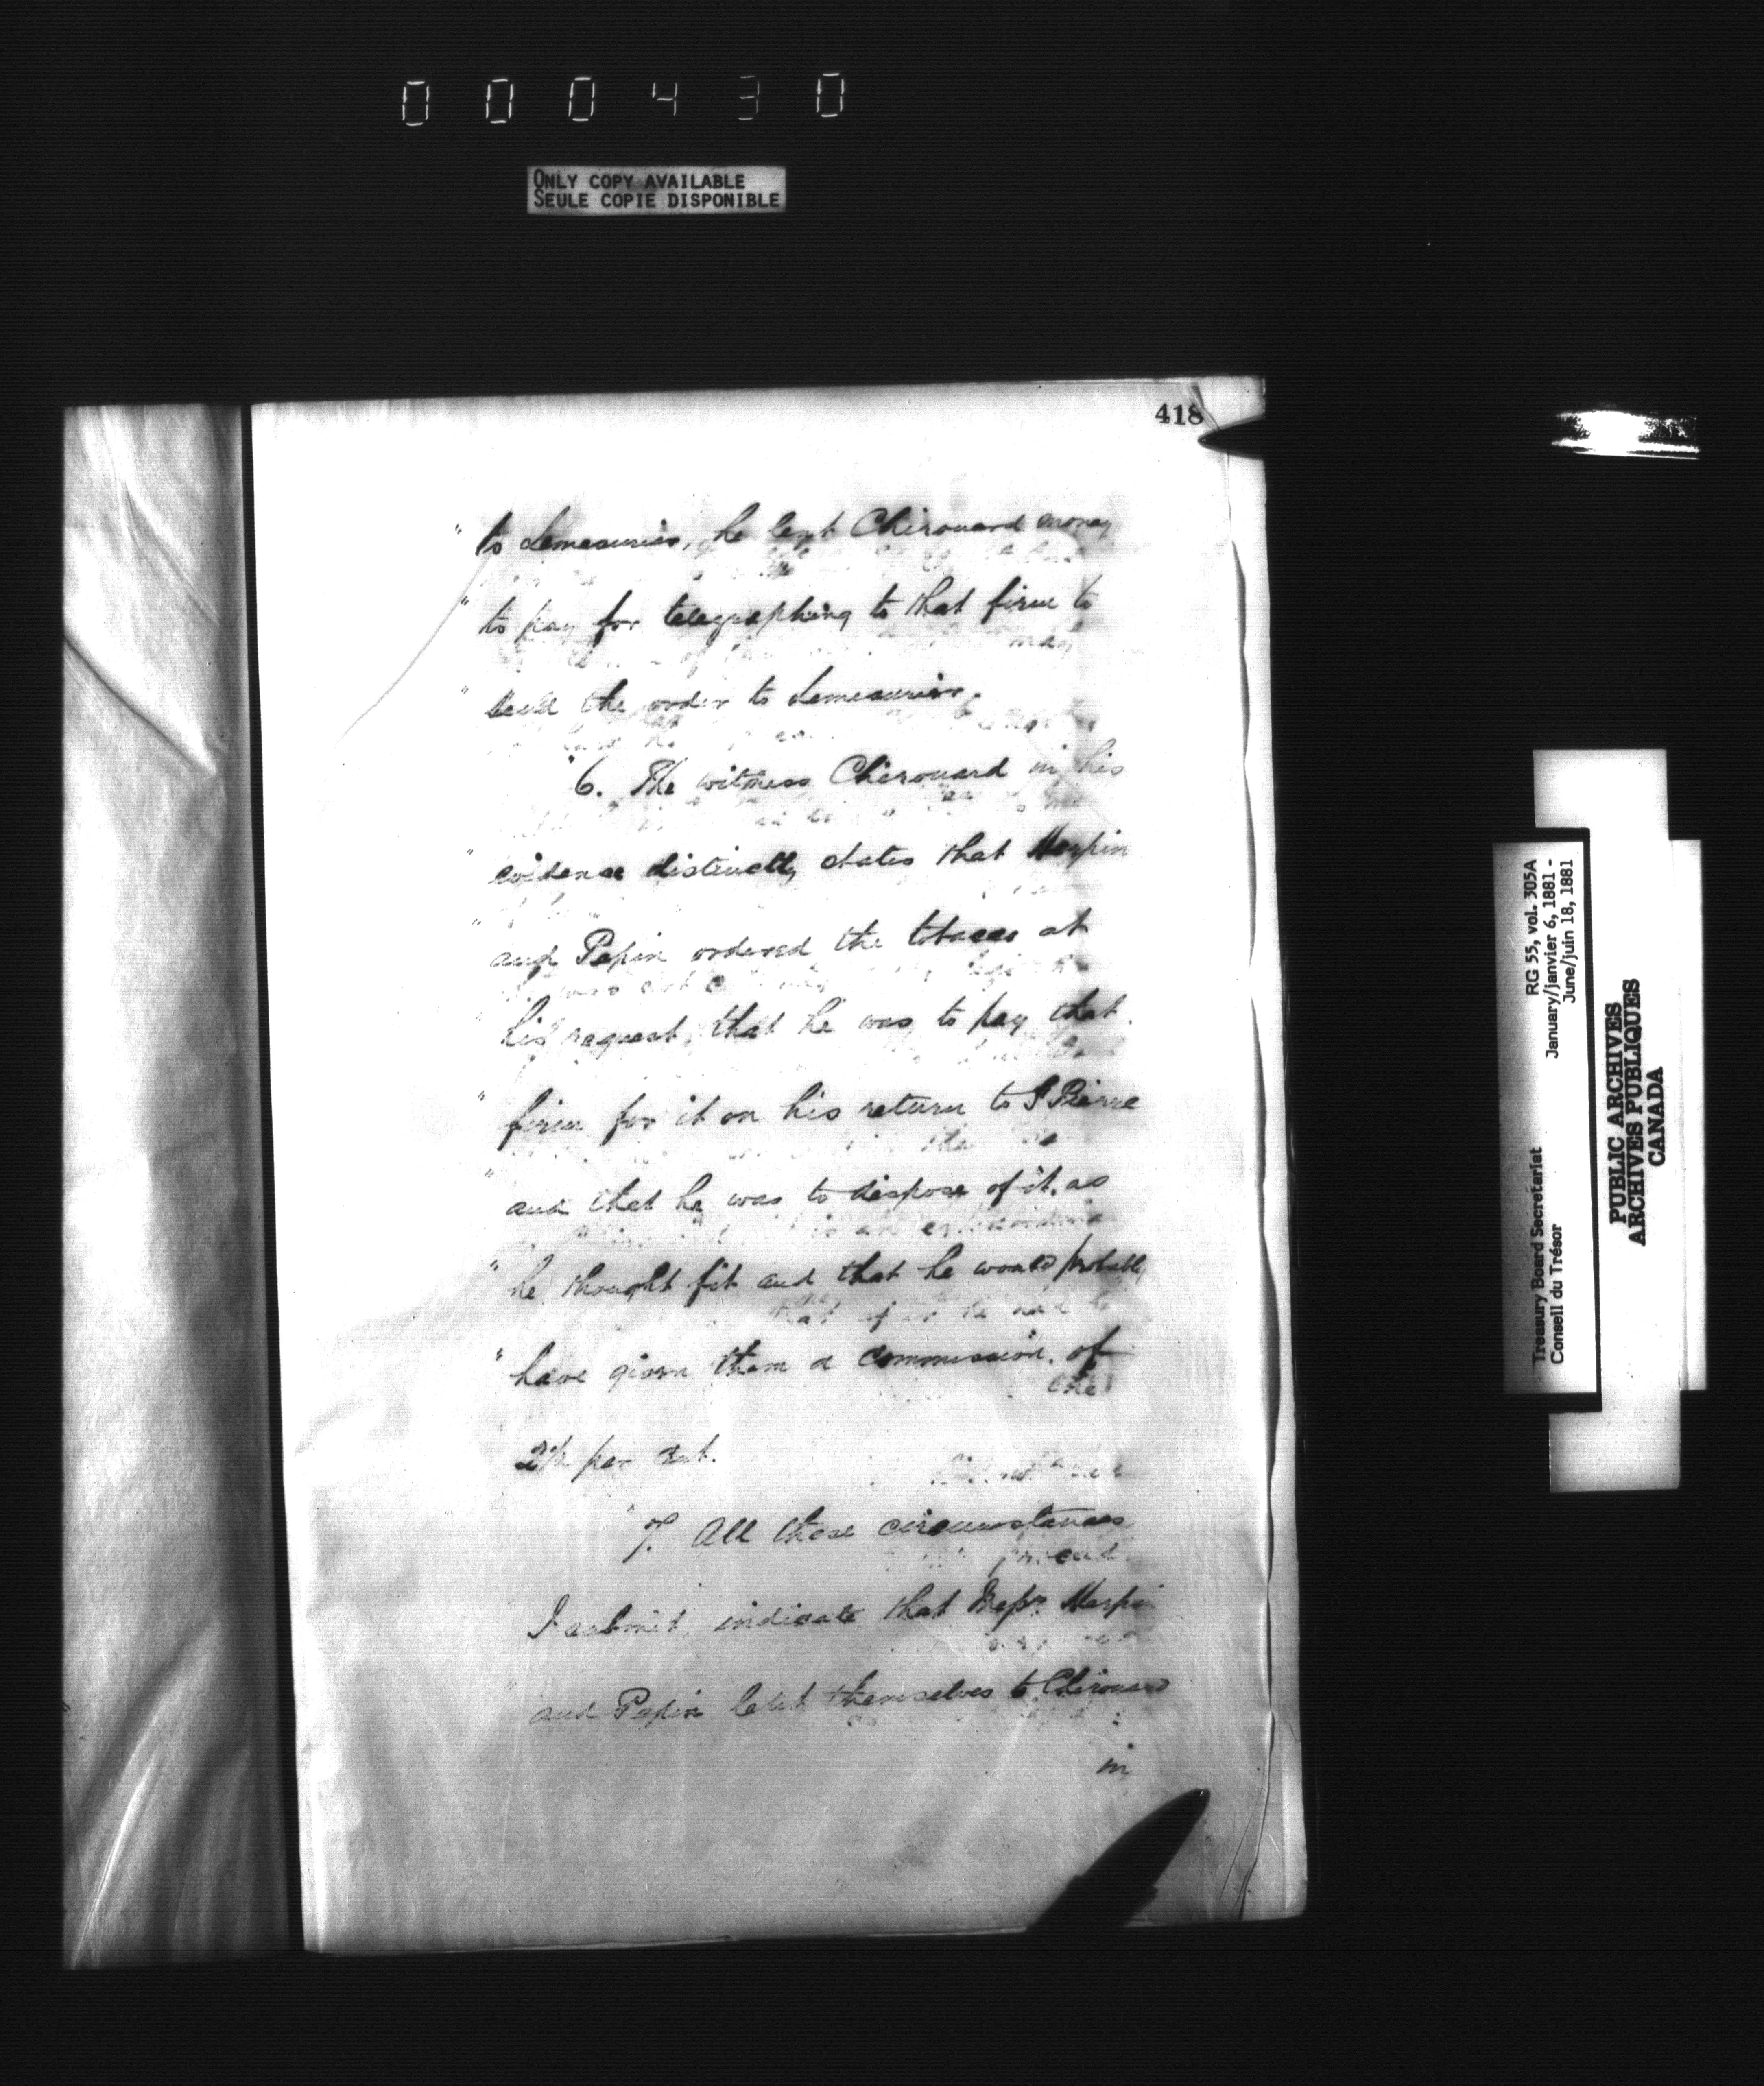 000430
ONLY COPY AVAILABLE
SEULE COPIE DISPONIBLE
418
" to Lemesurier, he lent Chirouard money
" to pay for telegraphing to that firm to
" send the order to Lemesurier.
"6. The witness Chirouard in his
" evidence distinctly states that Maspin
" and Papin ordered the tobacco at
" his request, that he was to pay that
" firm for it on his return to St Pierre
" and that he was to dispose of it, as
" he thought fit and that he would probably
" have given them a commission of
2½ per cent.
"7. All these circumstances
I submit, indicate that Messrs Maspin
" and Papin lent themselves to Chirouard
in
Treasury Board Secretariat
Conseil du Trésor
RG 55, vol. 305A
January/janvier 6, 1881 -
June/juin 18, 1881
PUBLIC ARCHIVES
ARCHIVES PUBLIQUES
CANADA